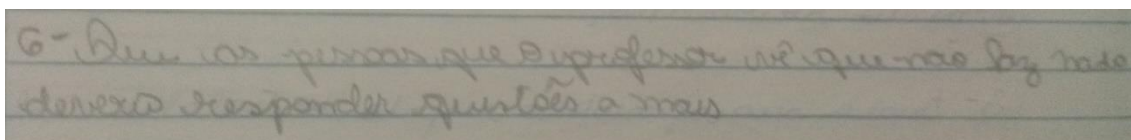 6- Que as pessoas que o professor vê que não faz nada
deverá responder questões a mais